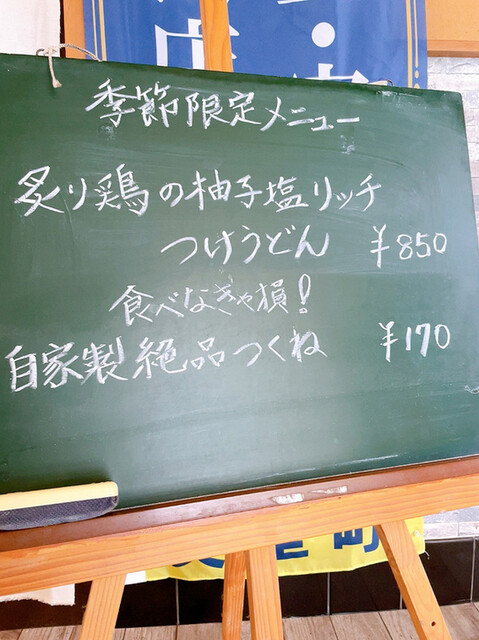 季節限定メニュー
炙り鶏の柚子塩リッチ
つけうどん ¥850
食べなきゃ損！
自家製絶品つくね ¥170